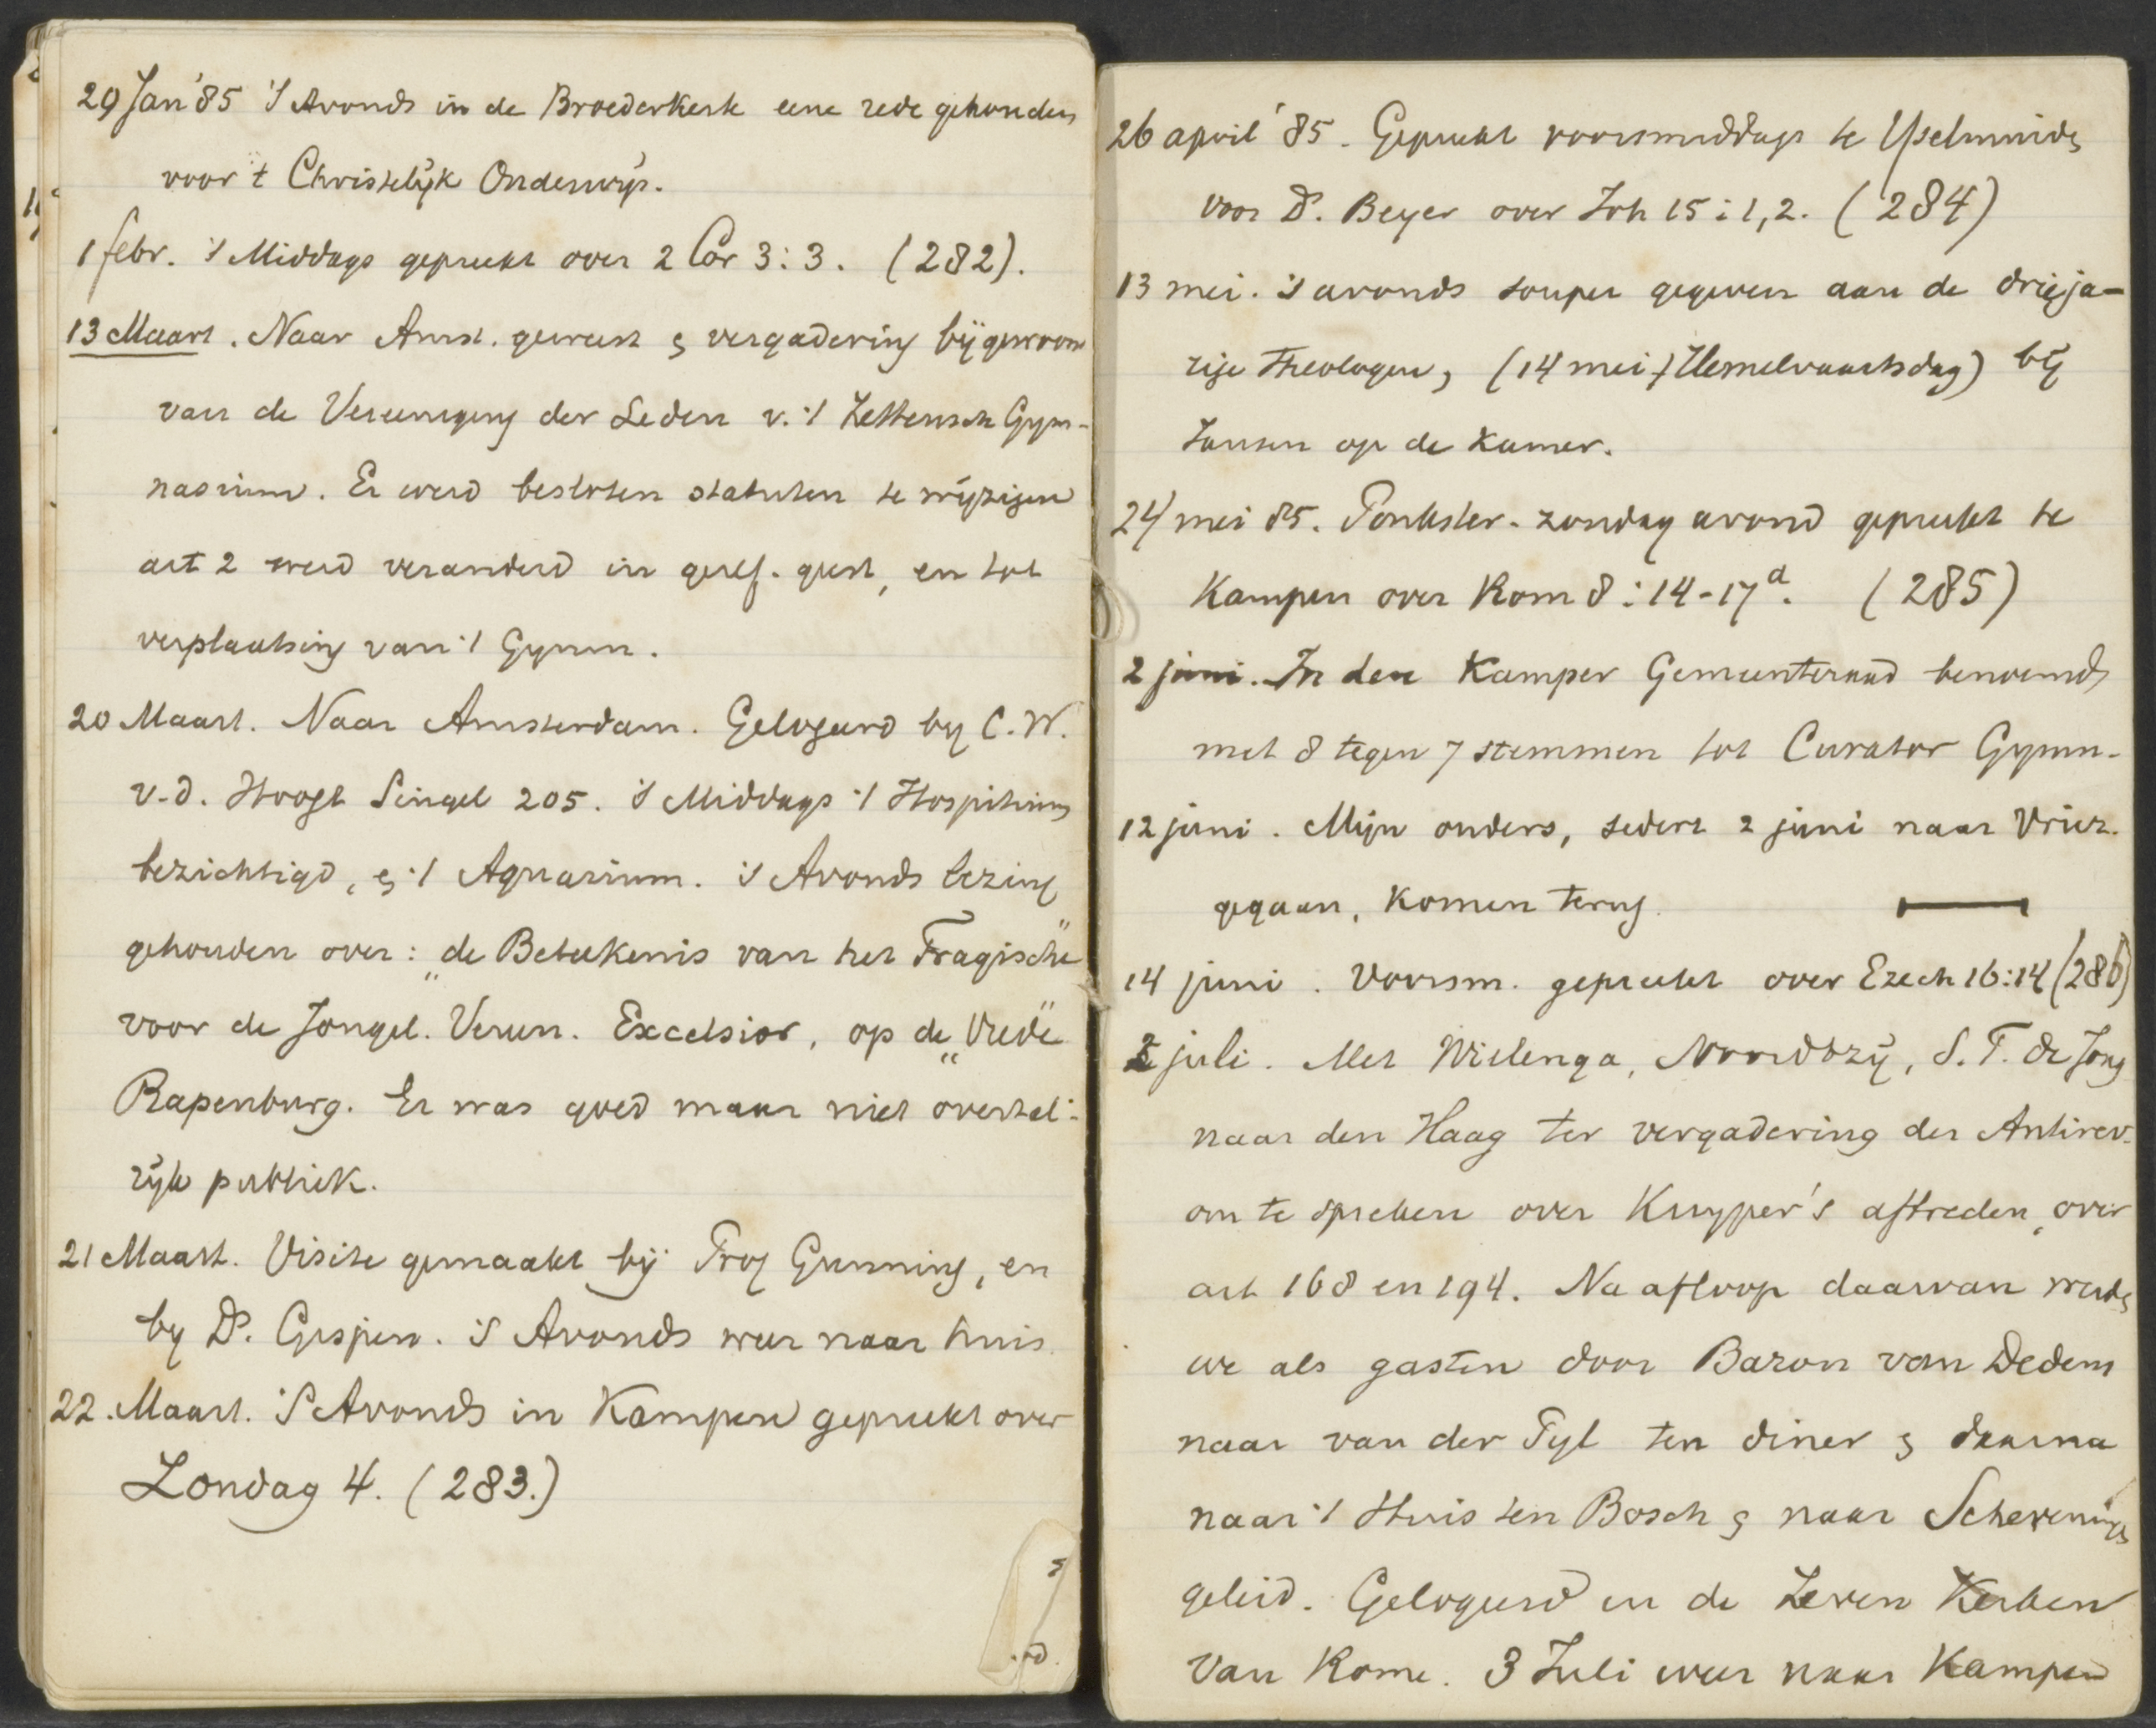 29 Jan '85 's Avonds in de Broederkerk eene rede gehouden
voor 't Christelijk Onderwijs.
1 febr. 's Middags gepreekt over 2 Cor 3:3. (282).
13 Maart. Naar Amst. geweest & vergadering bijgewoond
van de Vereeniging der Leden v. 't Zettensch Gym-
nasium. Er werd besloten statuten te wijzigen
art 2 werd veranderd in geref. geest, en tot
verplaatsing van 't Gymn.
20 Maart. Naar Amsterdam. Gelogeerd by C. W.
v. d. Hoogt Singel 205. 's Middags 't Hospitium
bezichtigd, & 't Aquarium. 's Avonds lezing
gehouden over: „de Beteekenis van het Tragische"
voor de Jongel. Vereen. Excelsior, op de „Vrede"
Rapenburg. Er was goed maar niet overtal-
rijk publiek.
21 Maart. Visite gemaakt bij Prof Gunning, en
by Ds. Gispen. 's Avonds weer naar huis.
22. Maart. 's Avonds in Kampen gepreekt over
Zondag 4. (283.)
26 april '85. Gepreekt voormiddags te IJselmuiden
voor Ds. Beyer over Joh 15:1,2. (284)
13 mei. 's avonds souper gegeven aan de drieja-
rige Theologen, (14 mei, Hemelvaartsdag) bij
Jansen op de Kamer.
24 mei 85. Pinkster-zondag avond gepreekt te
Kampen over Rom 8:14-17a. (285)
2 juni. In den Kamper Gemeenteraad benoemd
met 8 tegen 7 stemmen tot Curator Gymn.
12 juni. Mijn ouders, sedert 2 juni naar Vriez.
gegaan, komen terug.
14 juni. Voorm. gepreekt over Ezech 16:14 (286)
2 juli. Met Wielenga, Noordtzij, S. T. de Jong
naar den Haag ter vergadering der Antirev.
om te spreken over Kuyper's aftreden, over
art 168 en 194. Na afloop daarvan werden
we als gasten door Baron van Dedem
naar van der Pyl ten diner & daarna
naar 't Huis ten Bosch & naar Scheveningen
geleid. Gelogeerd in de Zeven Kerken
van Rome. 3 Juli weer naar Kampen